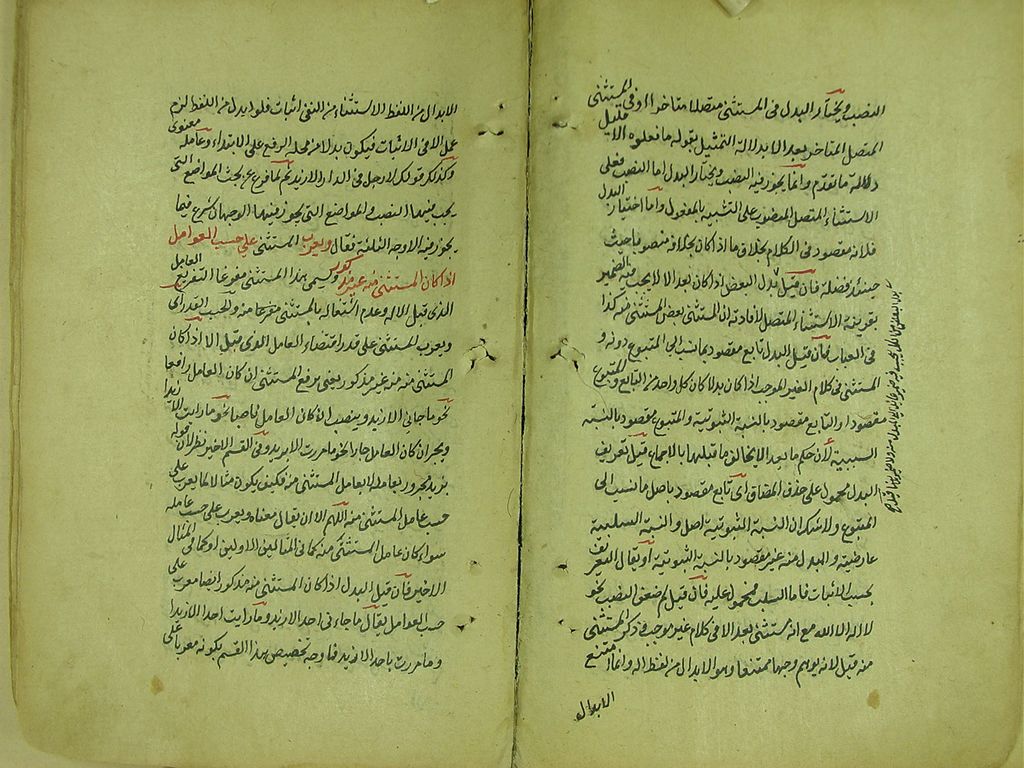 النصب ويختار البدل فى المستثنى متصلا متاخرا او فى المستثنى
المتصل المتاخر بعد الا بدلالة التمثيل بقوله ما فعلوه الا قليل
دلالة ما تقدم وانما يجوز فيه النصب ويختار البدل اما النصب فعلى
الاستثناء المتصل المنصوب على التشبيه بالمفعول واما اختيار البدل
فلانه مقصود فى الكلام بخلاف ما اذا كان بحاله منصوبا حيث
حينئذ فضلة فان قيل بدل البعض اذا كان بعد الا لا يجب فيه الضمير
بقرينة الاستثناء المتصل لافادته ان المستثنى بعض المستثنى منه كذا
فى العباب فان قيل البدل تابع مقصود بما نسب الى المتبوع دونه و
المستثنى فى كلام الغير الموجب اذا كان بدلا كان كل واحد من التابع والمتبوع
مقصودا والتابع مقصود بالنسبة الثبوتية والمتبوع مقصود بالنسبة
السلبية لان حكم ما بعد الا يخالف ما قبلها بالاجماع قيل تعريف
البدل محمول على حذف المضاف اى تابع مقصود باصل ما نسب الى
المتبوع ولا شك ان النسبة الثبوتية اصل والنسبة السلبية
عارضية والمبدل منه غير مقصود بالنسبة الثبوتية او يقال التعريف
بحسب الاثبات فاما السلب فمحمول عليه فان قيل لم ضعف النصب نحو
لا اله الا الله مع انه مستثنى بعد الا فى كلام غير موجب وذكر المستثنى
منه قيل لانه يوهم وجها ممتنعا وهو الابدال من لفظ اله وانما امتنع
الابدال
الابدال من اللفظ لان الاستثناء من النفى اثبات فلو ابدل من اللفظ لزم
عمل لا فى الاثبات فيكون بدلا من محله الرفع على الابتداء وعامله معنوى
وكذلك قولك لا رجل فى الدار الا زيد ثم لما فرغ عن بحث المواضع التى
يجب فيها النصب والمواضع التى يجوز فيها الوجهان شرع فيما
يجوز فيه الاوجه الثلثة فقال ويعرب المستثنى على حسب العوامل
اذا كان المستثنى منه غير مذكور ويسمى هذا المستثنى مفرغا لتفريغ العامل
الذى قبل الا له وعدم اشتغاله بالمستثنى منه
ويعرب المستثنى على قدر اقتضاء العامل الذى قبل الا اذا كان
المستثنى منه غير مذكور يعنى يرفع المستثنى ان كان العامل رافعا
نحو ما جاءنى الا زيد وينصب ان كان العامل ناصبا نحو ما رايت الا زيدا
ويجر ان كان العامل جارا نحو ما مررت الا بزيد وفى القسم الاخير نظر لان قوله
بزيد مجرور بعامله لا بعامل المستثنى منه فكيف يكون مثالا لما يعرب على
حسب عامل المستثنى منه اللهم الا ان يقال معناه ويعرب على حسب عامله
سواء كان عامل المستثنى منه كما فى المثالين الاولين او كما فى المثال
الاخير فان قيل البدل اذا كان المستثنى منه مذكورا ايضا معرب على
حسب العوامل يقال ما جاءنى احد الا زيد وما رايت احدا الا زيدا
وما مررت باحد الا زيد فما وجه تخصيص هذا القسم بكونه معربا على